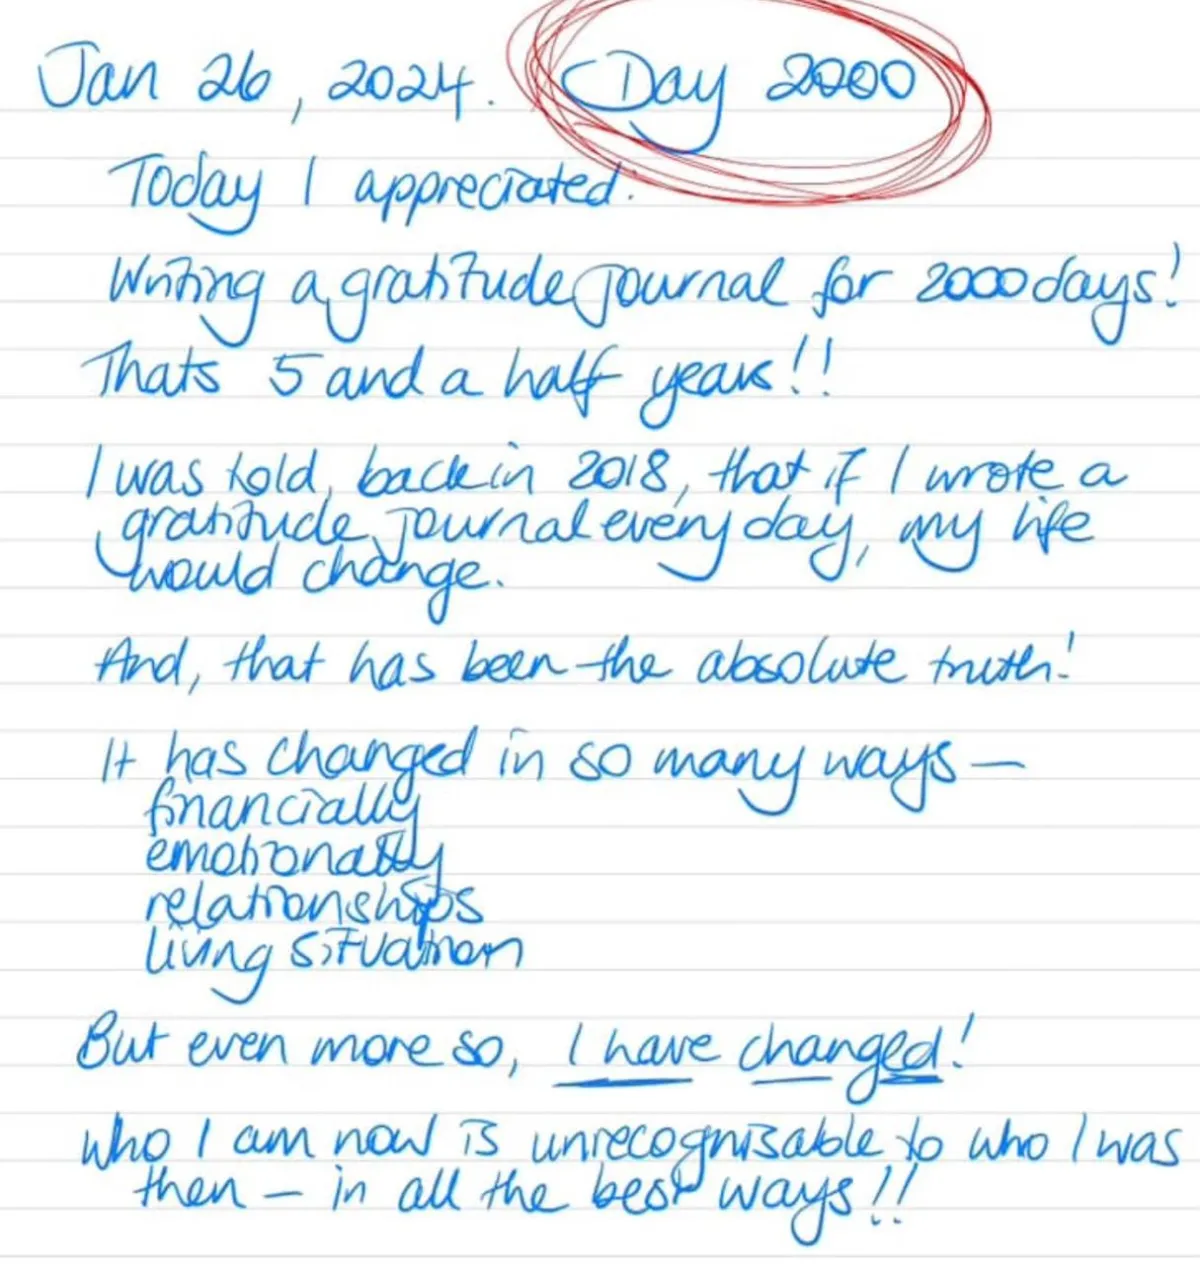 Jan 26, 2024. Day 2000
Today I appreciated:
Writing a gratitude journal for 2000 days!
Thats 5 and a half years!!
I was told, back in 2018, that if I wrote a
gratitude journal every day, my life
would change.
And, that has been the absolute truth!
It has changed in so many ways —
financially
emotionally
relationships
living situation
But even more so, I have changed!
Who I am now is unrecognisable to who I was
then – in all the best ways!!